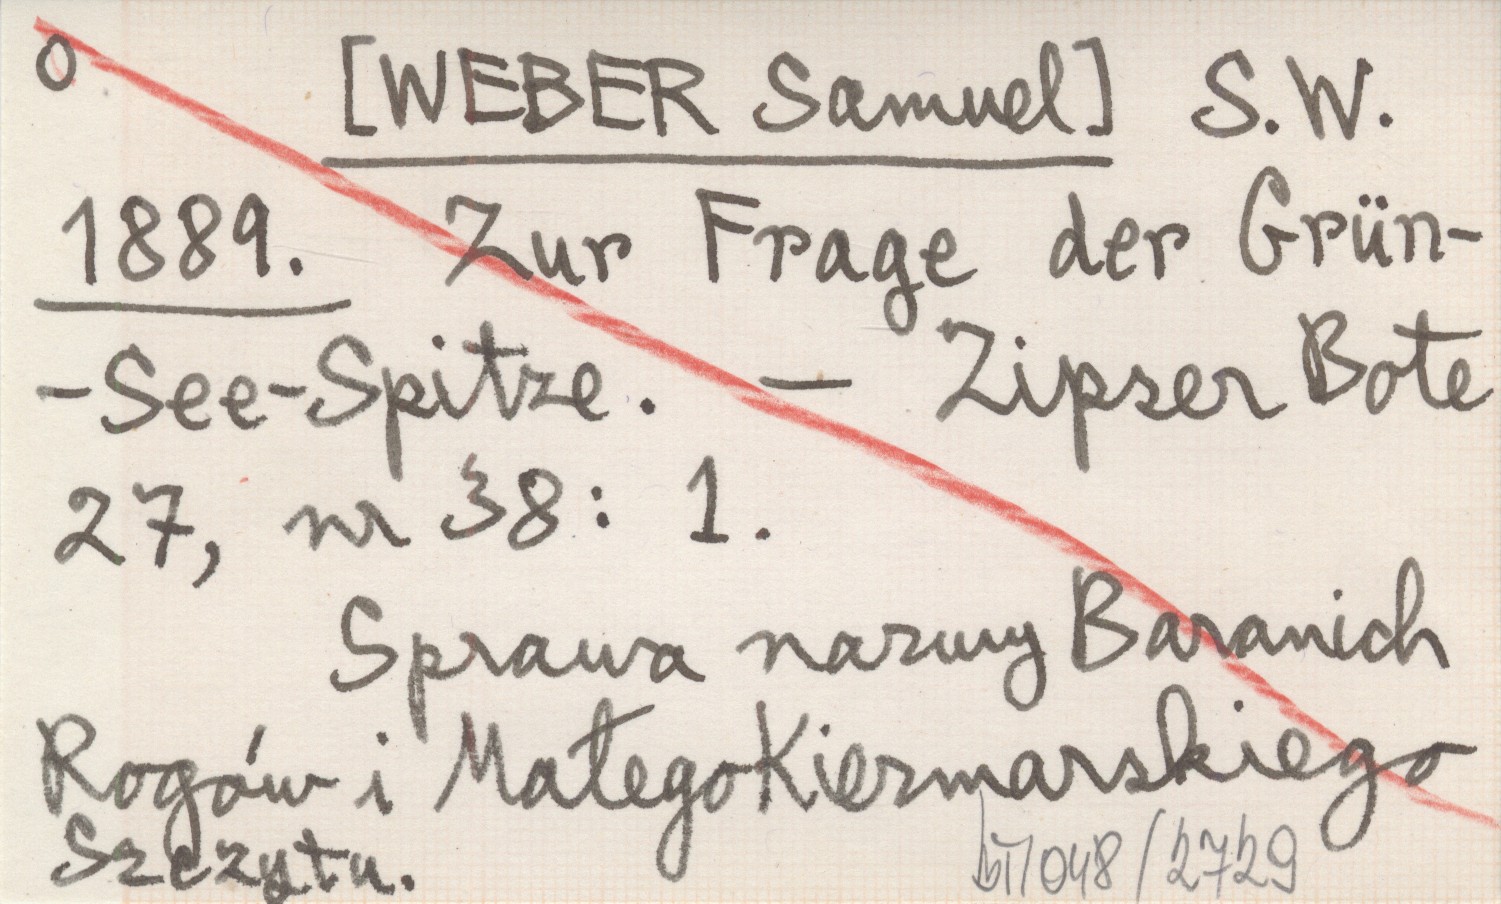 o [WEBER Samuel] S.W.
1889. Zur Frage der Grün-
-See-Spitze. — Zipser Bote
27, nr 38: 1.
Sprawa nazwy Baranich
Rogów i Małego Kiezmarskiego
Szczytu.
bT/048/2729